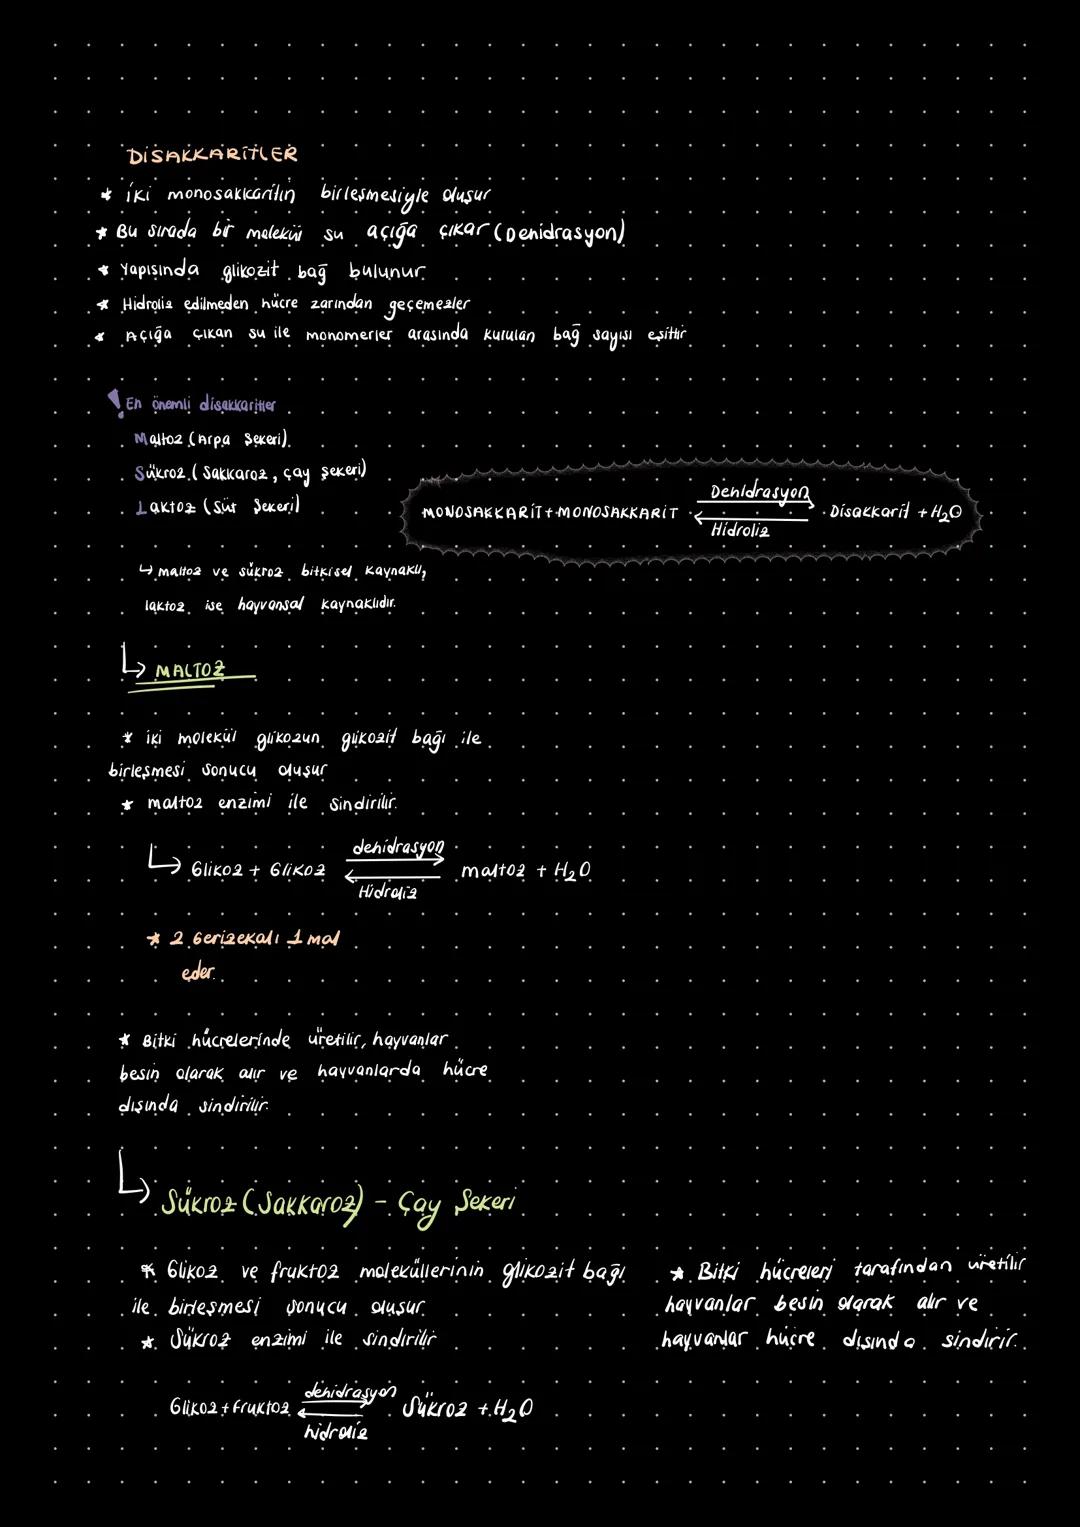 DİSAKKARİTLER
* İki monosakkaritin birleşmesiyle oluşur
* Bu sırada bir molekül su açığa çıkar (Dehidrasyon)
* Yapısında glikozit bağ bulunur
* Hidroliz edilmeden hücre zarından geçemezler
* Açığa çıkan su ile monomerler arasında kurulan bağ sayısı eşittir.
! En önemli disakkaritler
Maltoz (Arpa Şekeri)
Sükroz (Sakkaroz, çay şekeri)
Laktoz (Süt Şekeri)
MONOSAKKARİT + MONOSAKKARİT Dehidrasyon Hidroliz Disakkarit + H₂O
↳ maltoz ve sükroz bitkisel kaynaklı,
laktoz ise hayvansal kaynaklıdır.
↳ MALTOZ
* İki molekül glikozun glikozit bağı ile
birleşmesi sonucu oluşur
* maltoz enzimi ile sindirilir.
dehidrasyon
↳ Glikoz + Glikoz ⇌ maltoz + H₂O
Hidroliz
* 2 Gerizekalı 1 mal
eder.
* Bitki hücrelerinde üretilir, hayvanlar
besin olarak alır ve hayvanlarda hücre
dışında sindirilir.
↳ Sükroz (Sakkaroz) - Çay Şekeri
* Glikoz ve fruktoz moleküllerinin glikozit bağı
ile birleşmesi sonucu oluşur
* Sükroz enzimi ile sindirilir
dehidrasyon
Glikoz + Fruktoz ⇌ Sükroz + H₂O
hidroliz
* Bitki hücreleri tarafından üretilir
hayvanlar besin olarak alır ve
hayvanlar hücre dışında sindirir.